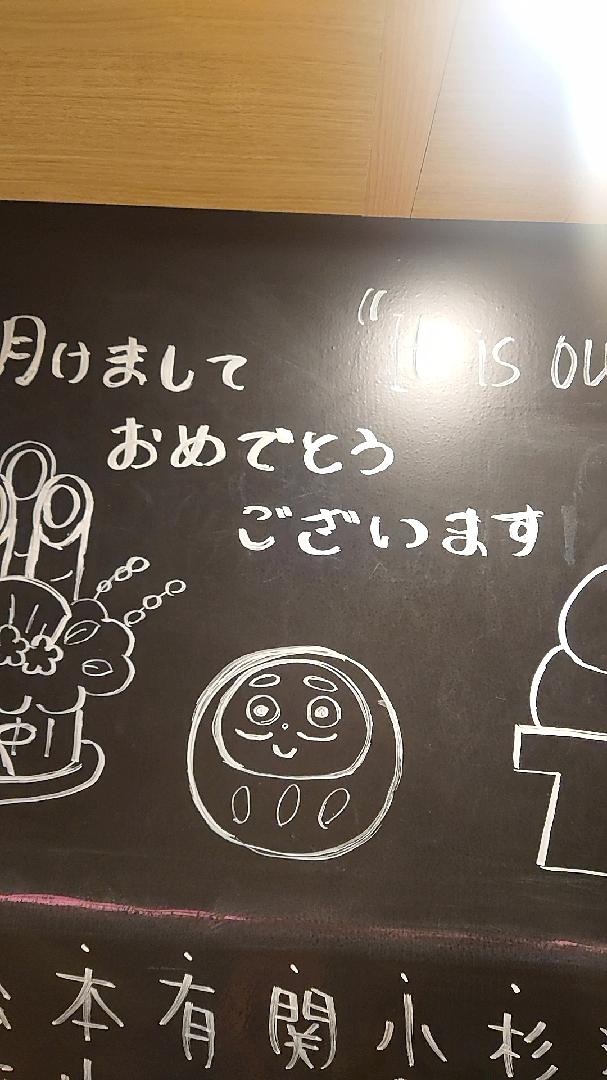 明けまして
おめでとう
ございます
"It is ou
本 有 関 小 杉